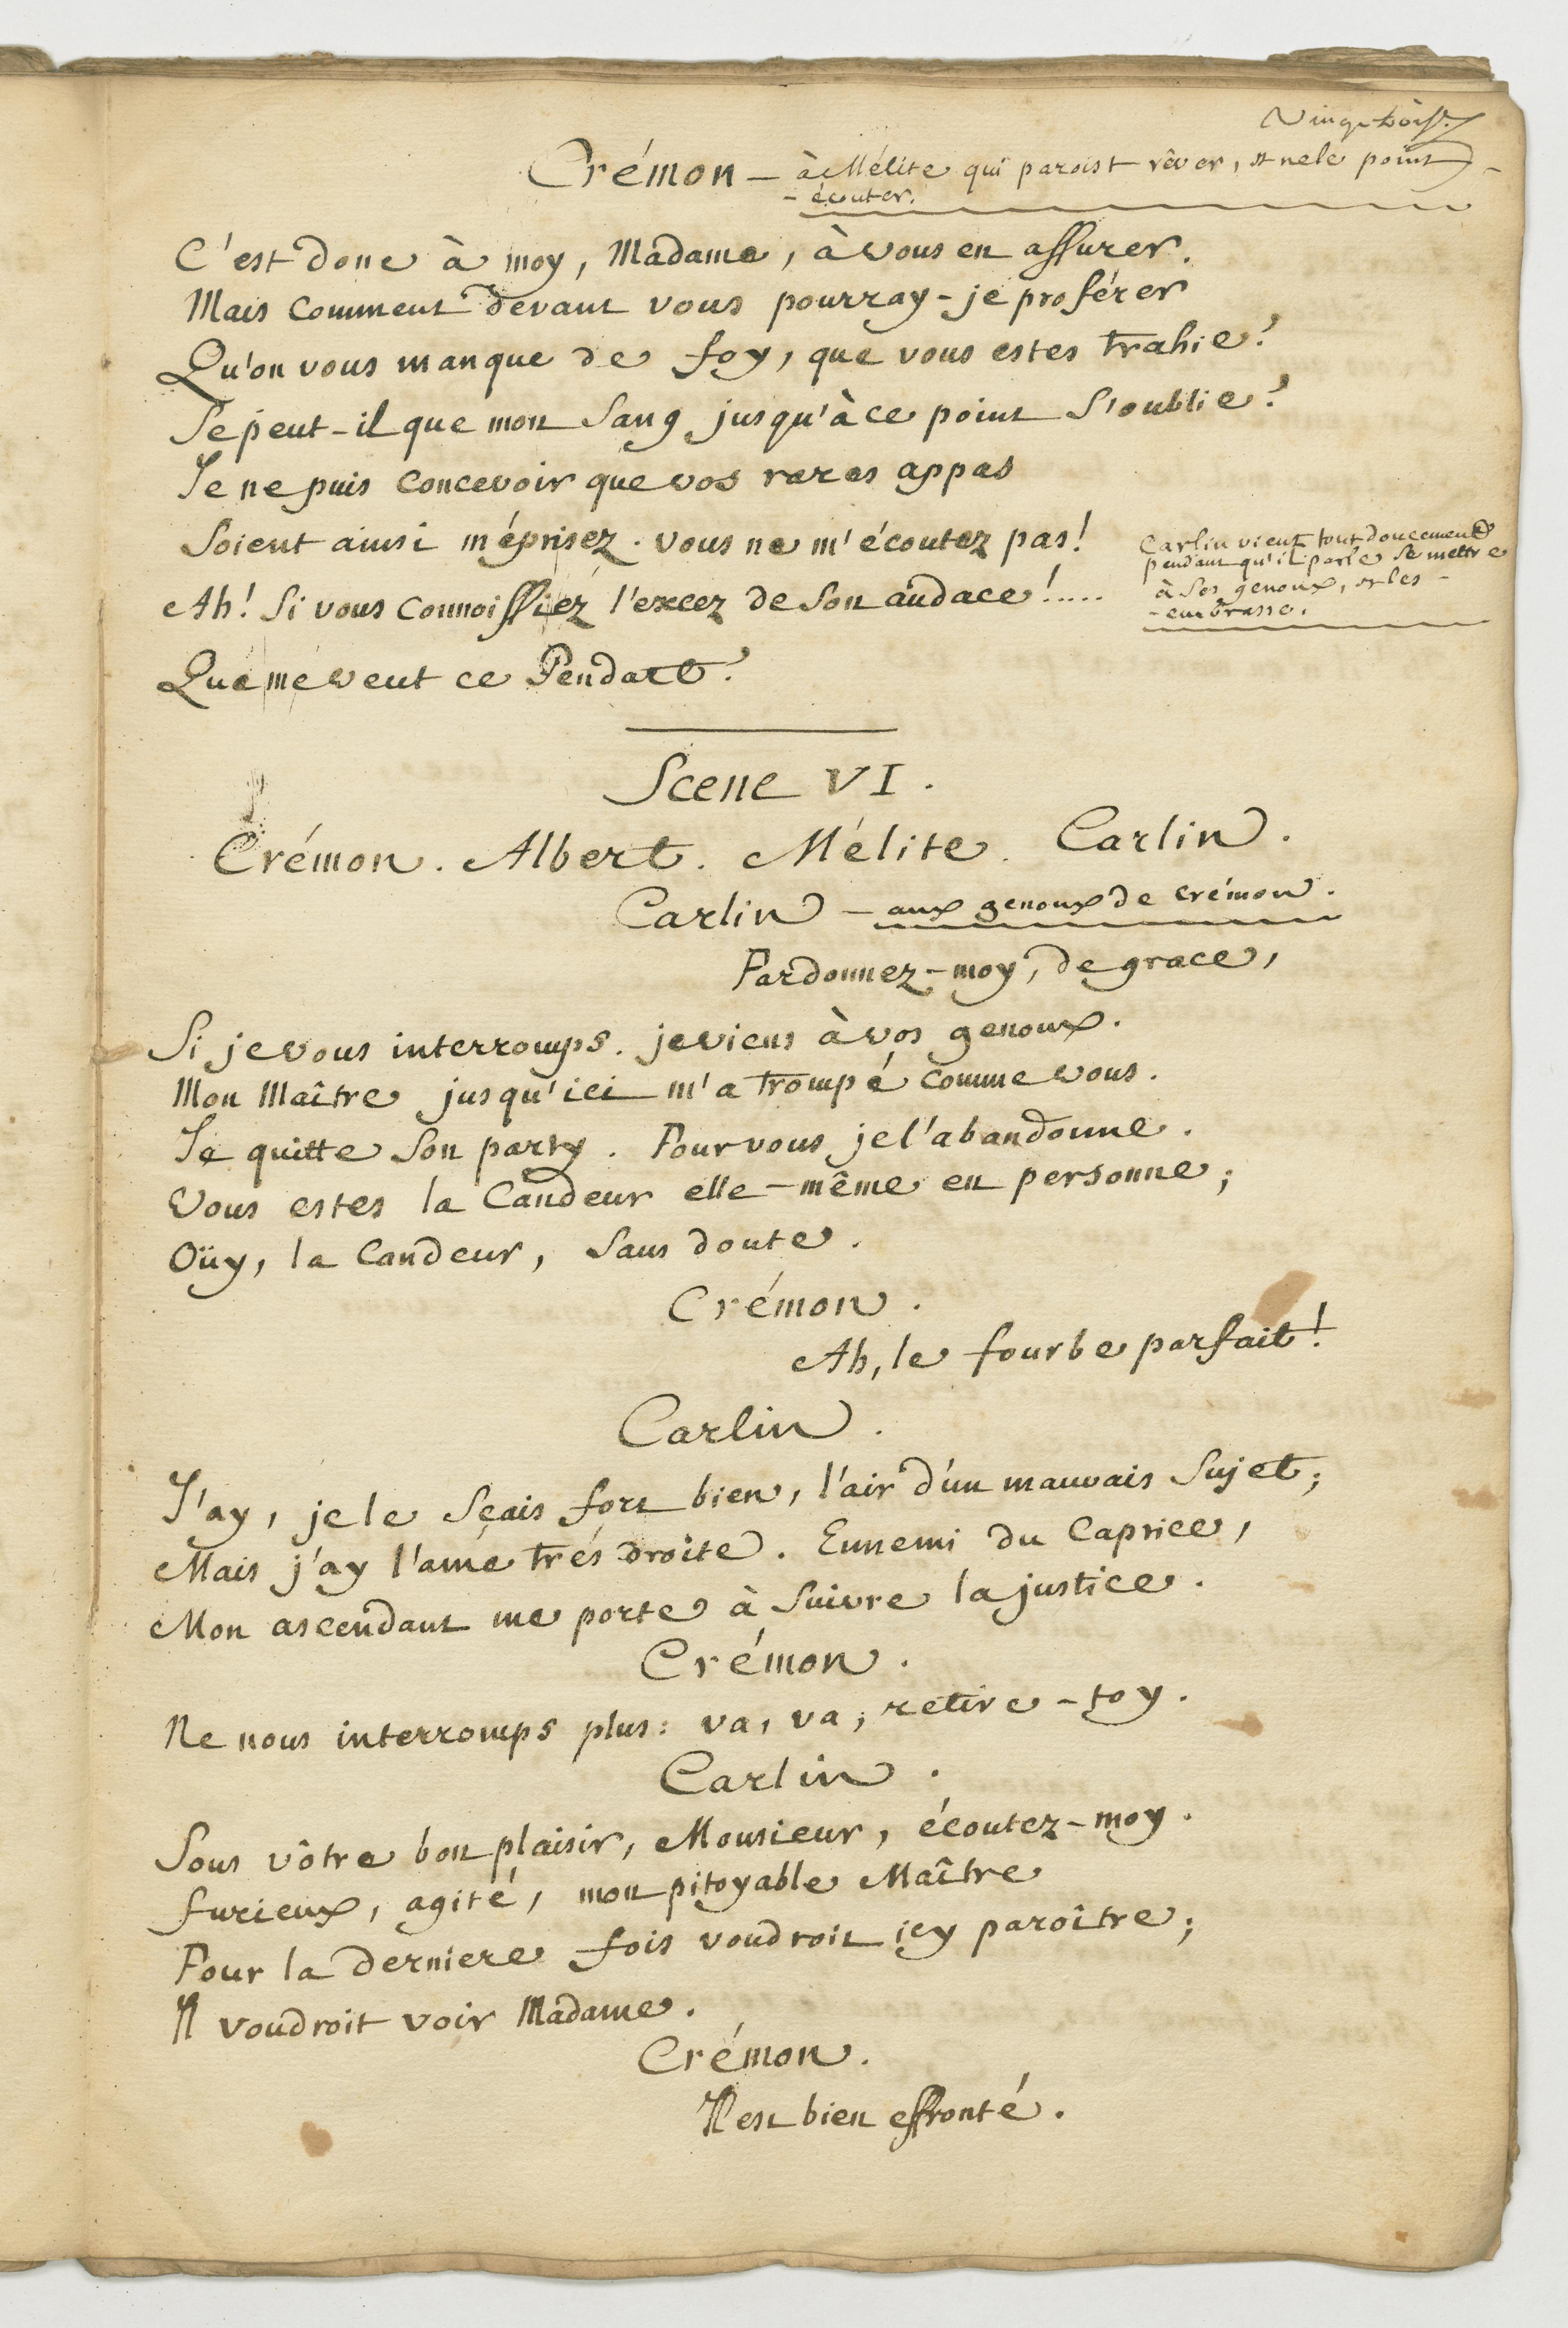 Vingt-trois.
Crémon - à Mélite qui paroist rêver, et ne le point -
- écouter.
C'est donc à moy, Madame, à vous en assurer.
Mais comment devant vous pourray-je proférer
Qu'on vous manque de foy, que vous estes trahie?
Se peut-il que mon Sang jusqu'à ce point S'oublie?
Je ne puis concevoir que vos rares appas
Soient ainsi méprisez. vous ne m'écoutez pas!
Ah! Si vous connoissiez l'excez de Son audace!.....
Carlin vient tout doucement
pendant qu'il parle Se mettre
à Ses genoux, et les -
- embrasse.
Que me veut ce Pendart?
Scene VI.
Crémon. Albert. Mélite. Carlin.
Carlin - aux genoux de Crémon.
Pardonnez-moy, de grace,
Si je vous interromps. je viens à vos genoux.
Mon Maître jusqu'ici m'a trompé comme vous.
Je quitte Son party. Pour vous je l'abandonne.
Vous estes la Candeur elle-même en personne;
Oüy, la Candeur, Sans doute.
Crémon.
Ah, le fourbe parfait!
Carlin.
J'ay, je le Sçais fort bien, l'air d'un mauvais Sujet;
Mais j'ay l'ame trés droite. Ennemi du Caprice,
Mon ascendant me porte à Suivre la justice.
Crémon.
Ne nous interromps plus: va, va, retire-toy.
Carlin.
Sous vôtre bon plaisir, Monsieur, écoutez-moy.
furieux, agité, mon pitoyable Maître
Pour la derniere fois voudroit icy paroître;
Il voudroit voir Madame.
Crémon.
Il est bien effronté.